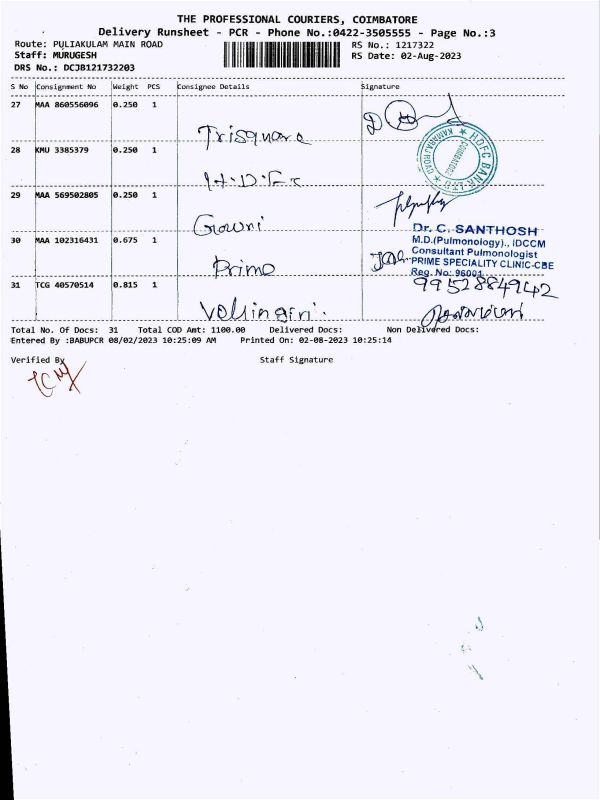 THE PROFESSIONAL COURIERS, COIMBATORE
Delivery Runsheet - PCR - Phone No.:0422-3505555 - Page No.:3
Route: PULIAKULAM MAIN ROAD RS No.: 1217322
Staff: MURUGESH RS Date: 02-Aug-2023
DRS No.: DCJB121732203
S No Consignment No Weight PCS Consignee Details Signature
27 MAA 860556096 0.250 1
Trisquare
HDFC BANK LTD
KAMARAJ ROAD
COIMBATORE
28 KMU 3385379 0.250 1
H.D.F.C
29 MAA 569502805 0.250 1
Gowri
Dr. C. SANTHOSH
M.D.(Pulmonology)., IDCCM
30 MAA 102316431 0.675 1
Consultant Pulmonologist
PRIME SPECIALITY CLINIC-CBE
Prime
Reg. No: 96001
31 TCG 40570514 0.815 1
9952884942
Vellingiri.
Total No. Of Docs: 31 Total COD Amt: 1100.00 Delivered Docs: Non Delivered Docs:
Entered By :BABUPCR 08/02/2023 10:25:09 AM Printed On: 02-08-2023 10:25:14
Verified By Staff Signature